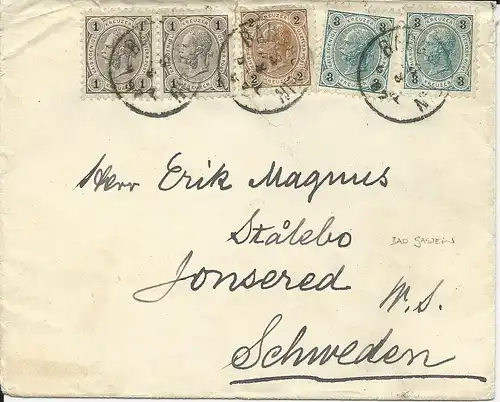 1 KREUZER 1 1 KREUZER 1 2 KREUZER 2 3 KREUZER 3 3 KREUZER 3
Herr Erik Magnus
Stålebo
BAD GASTEIN
Jonsered
W. S.
Schweden